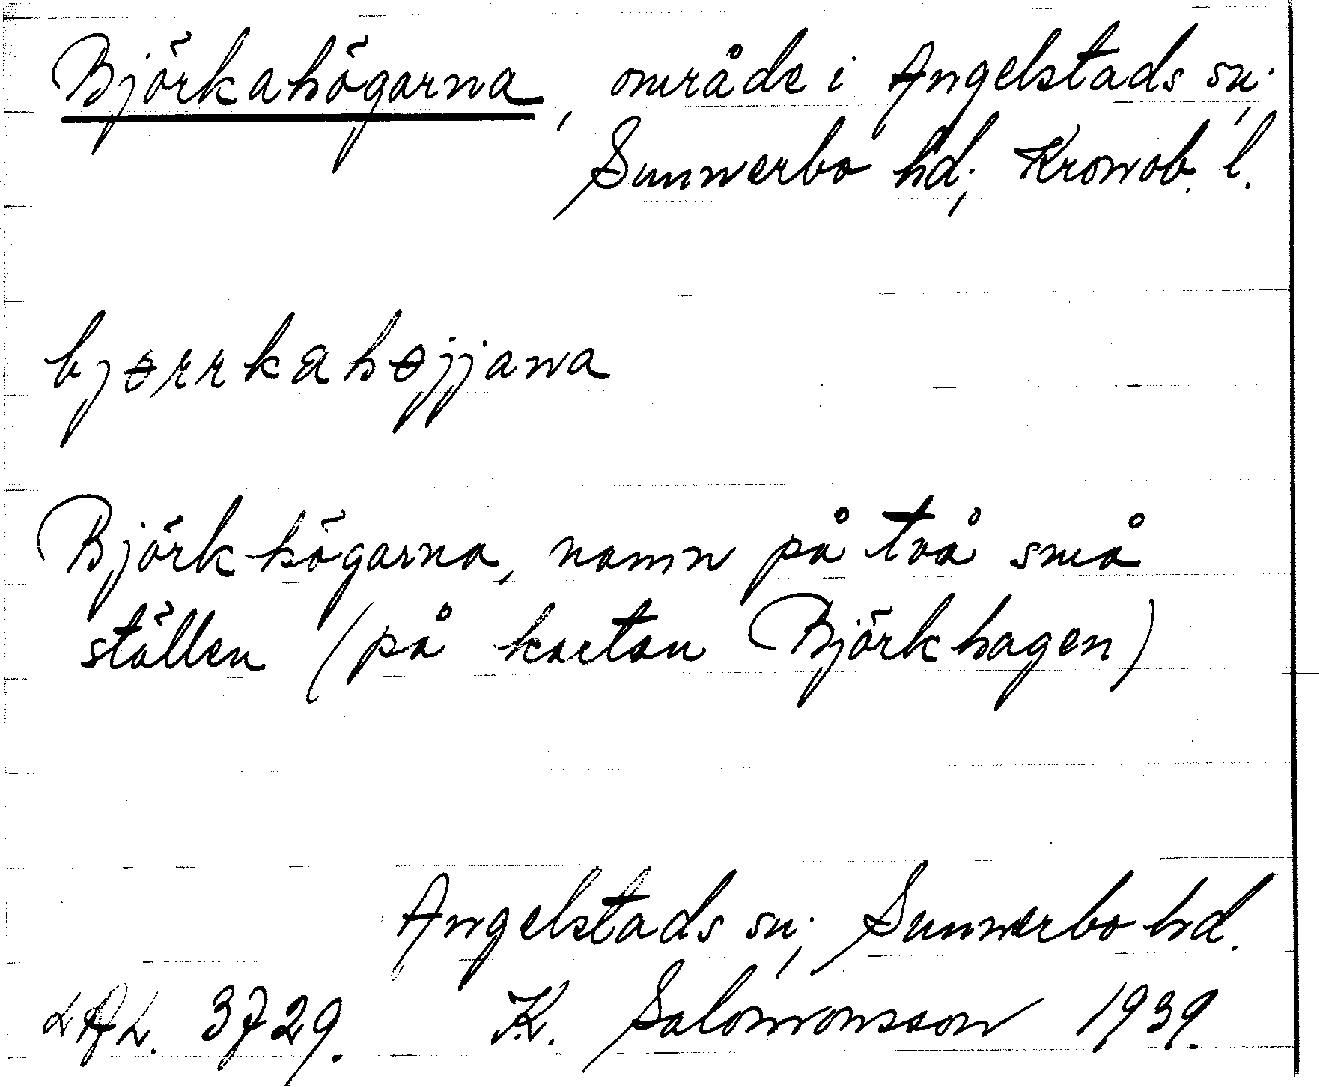 Björkahögarna, område i Angelstads sn.
Sunnerbo hd; Kronob. l.
bjɵrrkahɵjjana
Björkhögarna, namn på två små
ställen (på kartan Björkhagen)
Angelstads sn; Sunnerbo hd.
LAL. 3729. K. Salomonsson 1939.